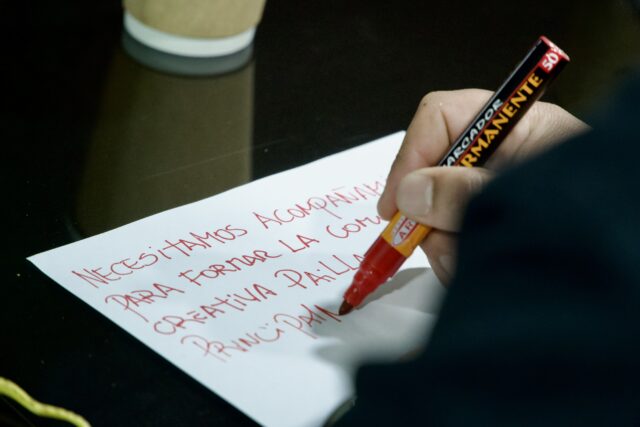 NECESITAMOS ACOMPAÑAM
PARA FORMAR LA COM
CREATIVA PAILLA
PRINCIPAL
ARCADOR
RMANENTE
50